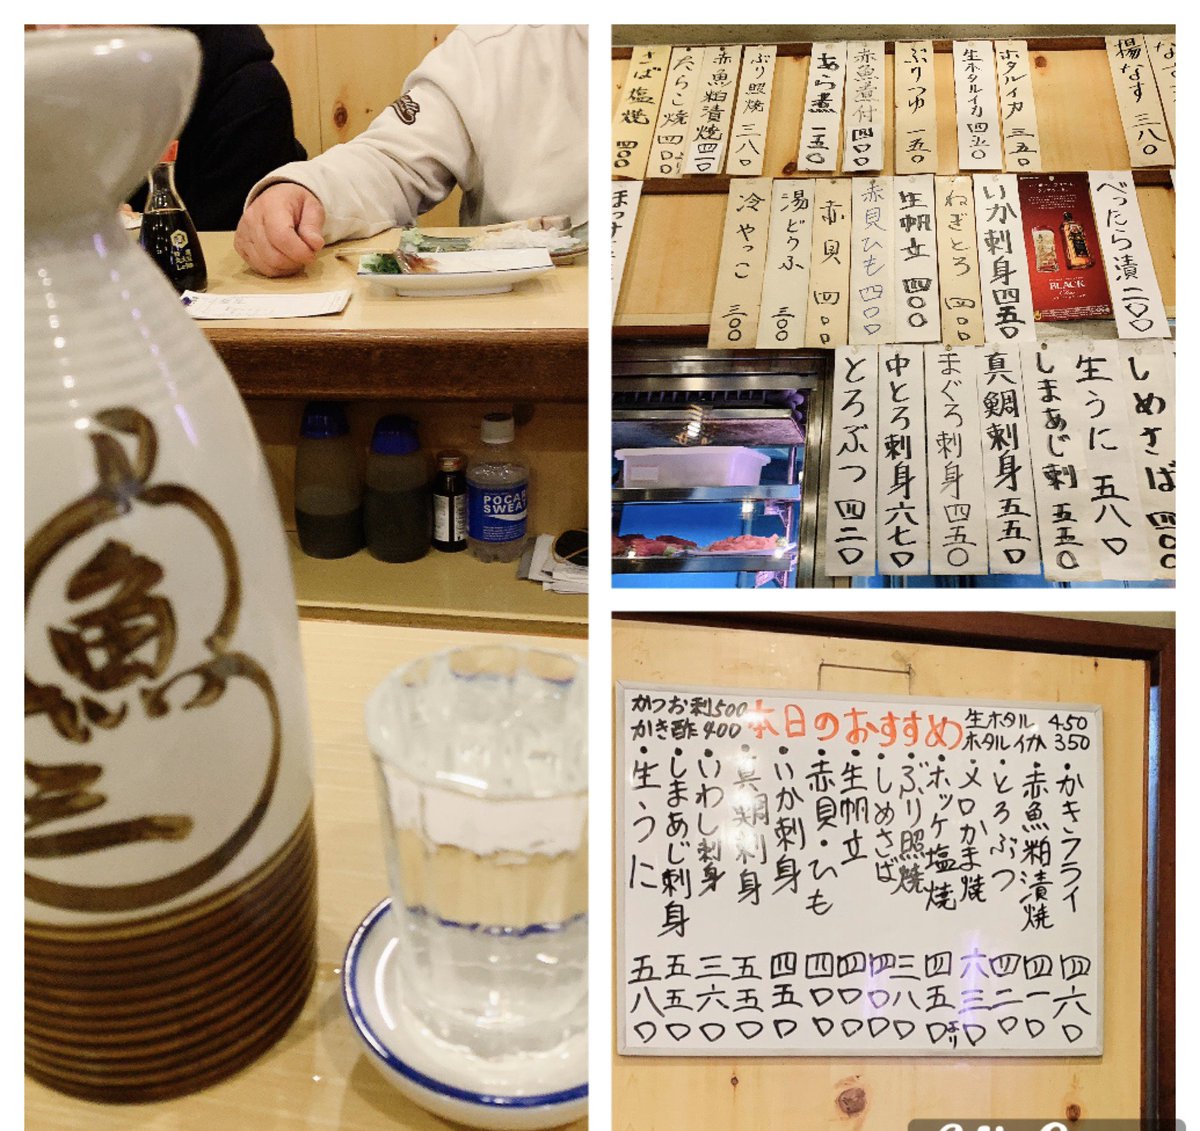 魚
三
POCARI
SWEAT
さば塩焼 四〇〇
たらこ焼 四〇〇より
赤魚粕漬焼 四一〇
ぶり照焼 三八〇
あら煮 一五〇
赤魚煮付 四〇〇
ぶりつゆ 一五〇
生ホタルイカ 四五〇
ホタルイカ 三五〇
揚なす 三八〇
冷やっこ 三〇〇
湯どうふ 三〇〇
赤貝 四〇〇
赤貝ひも 四〇〇
生帆立 四〇〇
ねぎとろ 四〇〇
いか刺身 四五〇
BLACK
べったら漬 二〇〇
とろぶつ 四二〇
中とろ刺身 六七〇
まぐろ刺身 四五〇
真鯛刺身 五五〇
しまあじ刺 五五〇
生うに 五八〇
しめさば 四〇〇
かつお刺500
かき酢 400
本日のおすすめ
生ホタル 450
ホタルイカ 350
・かきフライ 四六〇
・赤魚粕漬焼 四一〇
・とろぶつ 四二〇
・メロかま焼 六三〇
・ホッケ塩焼 四五〇より
・ぶり照焼 三八〇
・しめさば 四〇〇
・生帆立 四〇〇
・赤貝・ひも 四〇〇
・いか刺身 四五〇
・真鯛刺身 五五〇
・いわし刺身 三六〇
・しまあじ刺身 五五〇
・生うに 五八〇